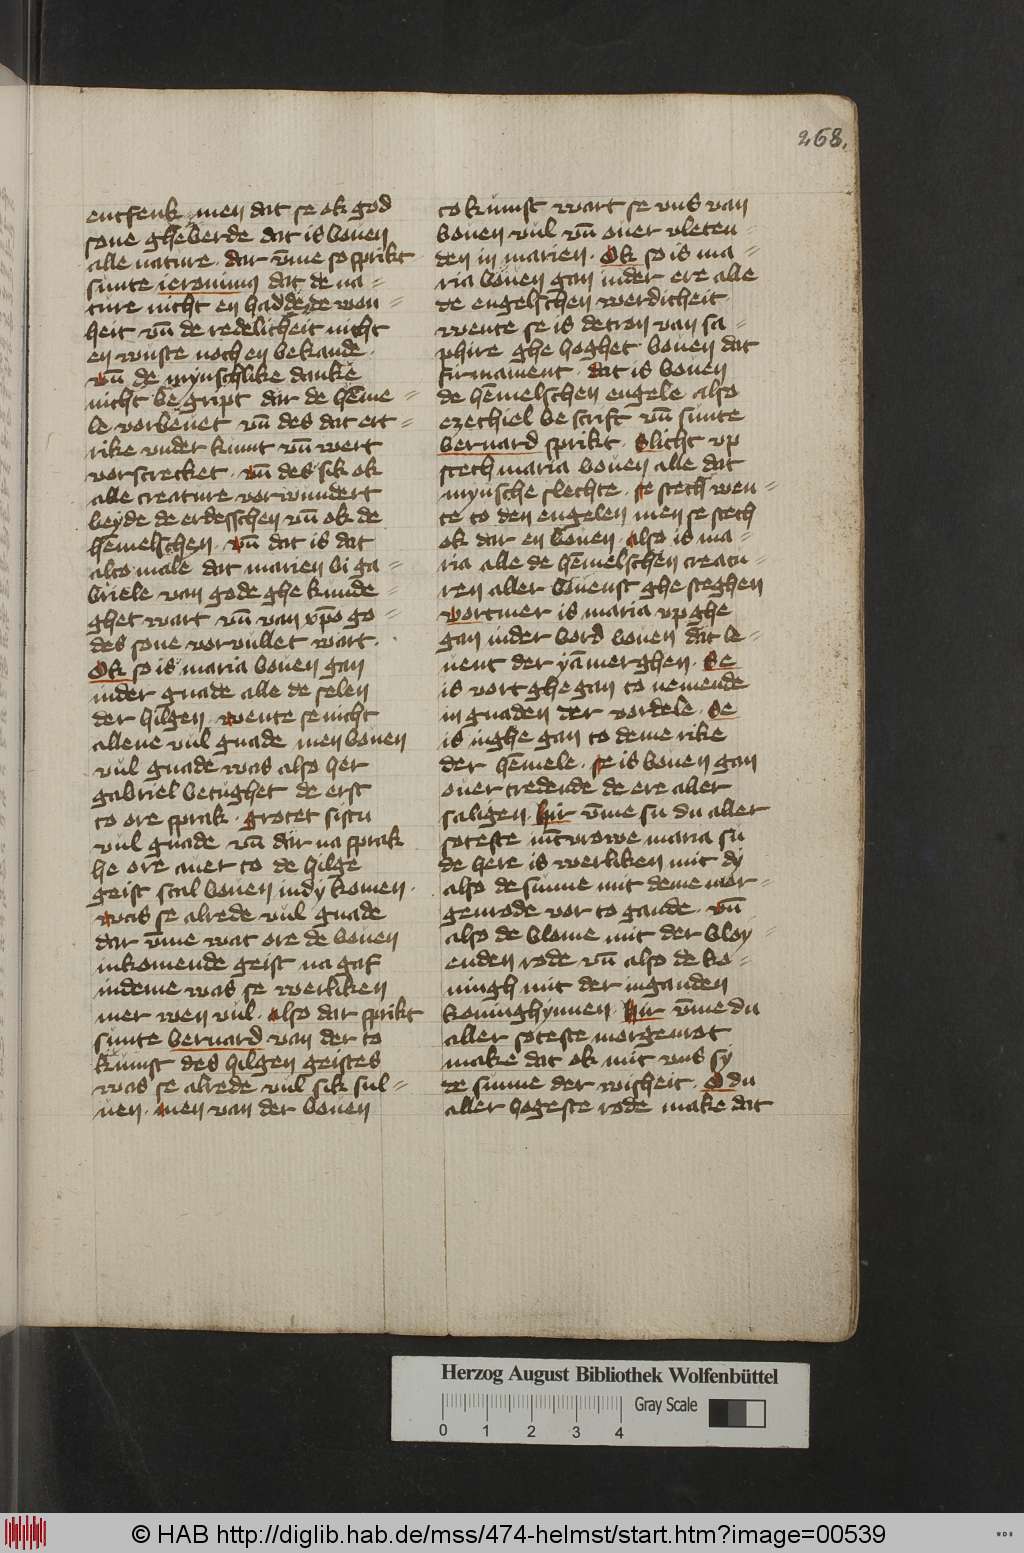 268.
entfenk men dat se ok god
sone gheberde dat is bouen
alle nature · dar vm̄e so sprikt
sunte ieronimus dat de na=
ture nicht en hadde de won=
heit vn̄ de redelicheit nicht
en wuste noch en bekande ·
vn̄ de mynschlike danke
nicht be gript dar de hēme=
le vorbeuet vn̄ des dat ert=
rike vnder kumt vn̄ wert
vorscrecket · vn̄ des sik ok
alle creature vorwundert
beyde de erdesschen vn̄ ok de
hēmelschen · vn̄ dat is dat
alto male dat marien bi ga=
briele van gode ghe kunde=
ghet wart vn̄ van xp̄o go=
des sone vorvullet wart ·
Ok so is maria bouen gan
inder gnade alle de selen
der hilgen · wente se nicht
allene vul gnade men bouen
vul gnade was also her
gabriel betughet de erst
to ore sprak · grotet sistu
vul gnade vn̄ dar na sprak
he ore auer to de hilge
geist scal bouen indy komen ·
was se alrede vul gnade
dar vm̄e wat ore de bouen
inkomende geist na gaf
indeme was se werliken
mer wen vul · also dar sprikt
sunte bernard van der to
kumst des hilgen geistes
was se alrede vul sik sul=
uen · men van der bouen
to kumst wart se vns van
bouen vul vn̄ ouer vleten=
den in marien · Ok so is ma=
ria bouen gan inder ere alle
de engelschen werdicheit ·
wente se is detron van sa=
phire ghe hoghet bouen dat
firmament · dat is bouen
de hēmelschen engele also
ezechiel be scrift vn̄ sunte
bernard sprikt · Slicht vp
stech maria bouen alle dat
mynsche slechte · se stech wen=
te to den engelen men se stech
ok dar en bouen · also is ma=
ria alle de hēmelschen creatu=
ren aller bouenst ghe steghen
vortmer is maria vp ghe
gan inder bord bouen dat le=
uent der yāmerghen · Se
is vort ghe gan to nemende
in gnaden der vordele · Se
is inghe gan to deme rike
der hēmele · se is bouen gan
ouer tredende de ere aller
saligen · hir vm̄e su du aller
soteste iūcvrowe maria su
de here is werliken mit dy
also de sunne mit deme mor=
genrode vor to gande · vn̄
also de blome mit der bloy=
enden rode vn̄ also de ko=
ningh mit der inganden
koninghynnen · hir vm̄e du
aller soteste morgenrot
make dat ok mit vns sy
de sunne der wisheit · O du
aller hogeste rode make dat
Herzog August Bibliothek Wolfenbüttel
Gray Scale
0 1 2 3 4
© HAB http://diglib.hab.de/mss/474-helmst/start.htm?image=00539